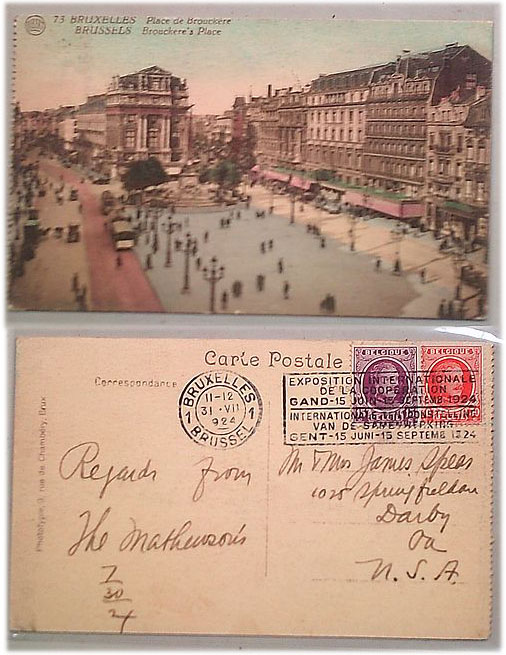 73 BRUXELLES Place de Brouckère
BRUSSELS Brouckère's Place
Carte Postale
Correspondance
Phototypie, 3, rue de Chambéry, Brux
BELGIQUE BELGIQUE
BRUXELLES
11-12
1 31 VII 1
924
BRUSSEL
EXPOSITION INTERNATIONALE
DE LA COOPERATION
GAND-15 JUIN-15 SEPTEMB 1924
INTERNATIONALE TENTOONSTELLING
VAN DE SAMENWERKING
GENT-15 JUNI-15 SEPTEMB 1924
Regards from
The Mathewson's
7
30
24
Mr & Mrs James Spear
1025 Springfield
Darby
Pa
U.S.A.